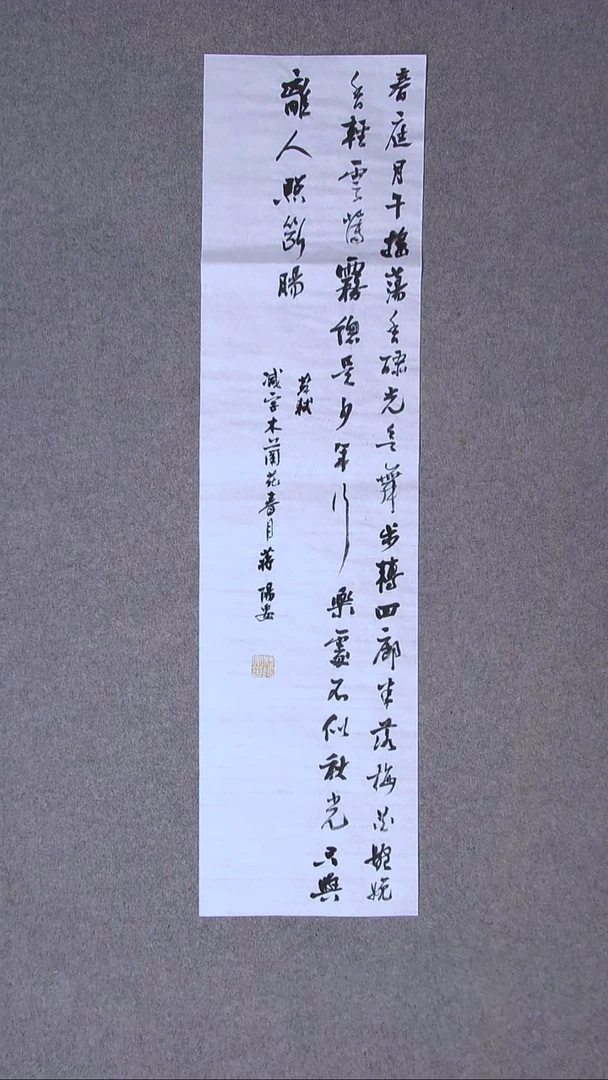 春庭月午搖蕩香醪光欲舞步轉回廊半落梅花婉娩
香輕雲薄霧總是少年行樂處不似秋光只與
離人照斷腸
蘇軾
減字木蘭花春月 蔣陽安